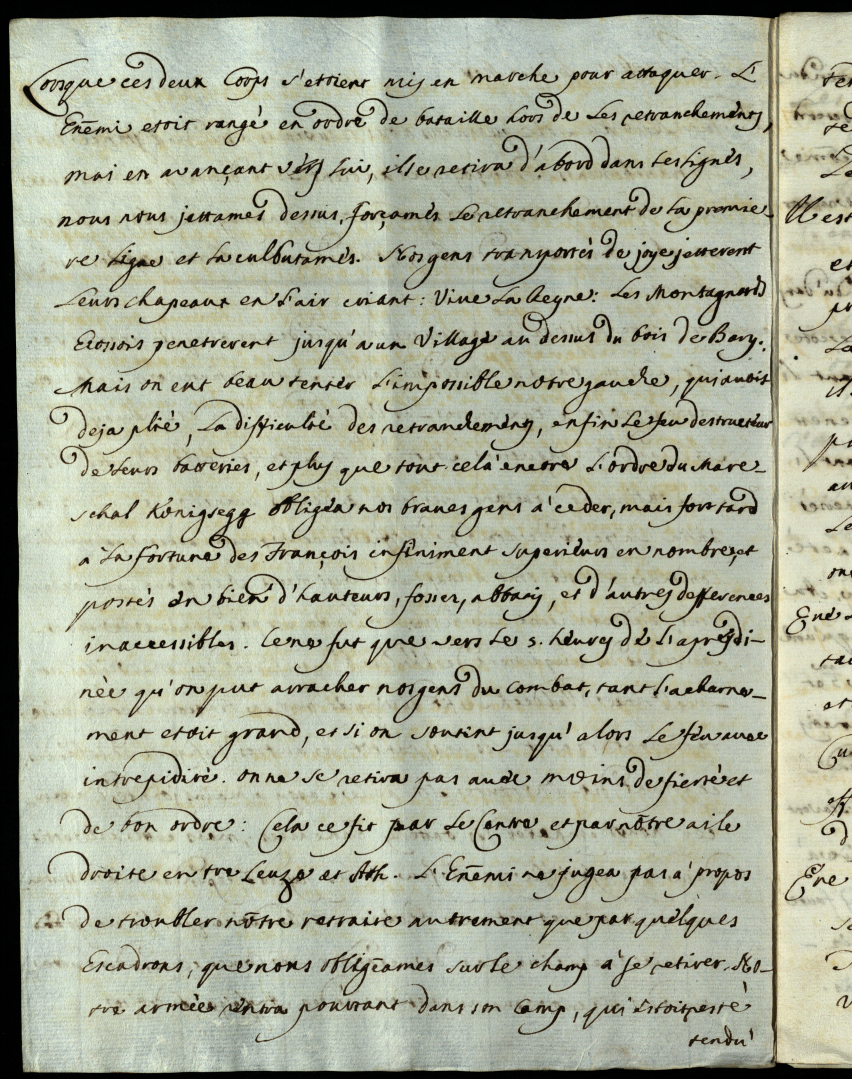 Lorsque ces deux Corps s'etoient mis en marche pour attaquer. L'
Enemi etoit rangé en ordre de bataille hors de Les retranchements,
mai en avançant vers lui, il se retira d'abord dans ses lignes,
nous nous jettames dessus, forçames le retranchement de la premie-
re ligne et la culbutames. Nos gens transportés de joye jetterent
Leurs chapeaux en l'air criant: Vive la Reyne: Les Montagnards
Ecossois penetrerent jusqu'a un Village au dessus du bois de Bary.
Mais on eut beau tenter L'impossible notre gauche, qui avoit
deja plié, La difficulté des retranchemens, enfin Le feu destructeur
de leurs batteries, et plus que tout cela encore L'ordre du Mare-
schal Königsegg obligea nos braves gens à ceder, mais fort tard
a la fortune des François infiniment superieurs en nombre, et
postés en bien d'hauteurs, fosses, abbatis, et d'autres defferences
inaccessibles. Ce ne fut que vers le 5. heures de L'apresdi-
née qu'on put arracher nos gens du combat, tant l'acharne-
ment etoit grand, et si on soutint jusqu'alors Le feu avec
intrepidité. on ne se retira pas avec moins de fierté et
de bon ordre: Cela ce fit par Le Centre et par nôtre aile
droite entre Leuze et Ath. L'Enemi ne jugea pas à propos
de troubler nôtre retraite autrement que par quelques
Escadrons, que nous obligeames sur le champ à se retirer. No-
tre armée rentra pourtant dans son Camp, qui etoit resté
tendu